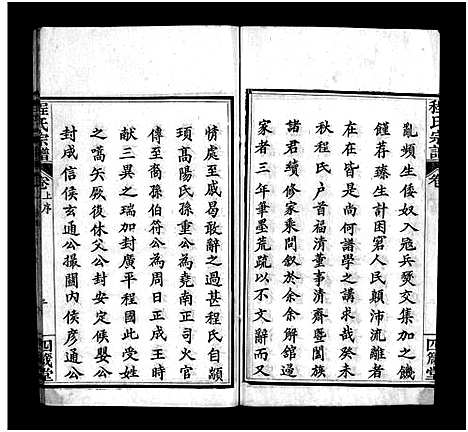 程氏宗譜
卷
四箴堂
亂頻生倭奴入寇兵燹交集加之饑
饉荐臻生計困窘人民顛沛流離者
在在皆是尚何譜學之講求哉癸未
秋程氏户首福清董事清齋暨闔族
諸君續修家乘問叙於余余解館適
家者三年筆墨荒疏以不文辭而又
情處至戚曷敢辭之過甚程氏自顓
頊高陽氏孫重公為堯南正司火官
傳至裔孫伯符公為周日正成王時
獻三異之瑞加封廣平程國此受姓
之嚆矢厥後休父公封安定侯嬰公
封成信侯玄通公攝閑侯彦通公
程氏宗譜
卷上序
四箴堂